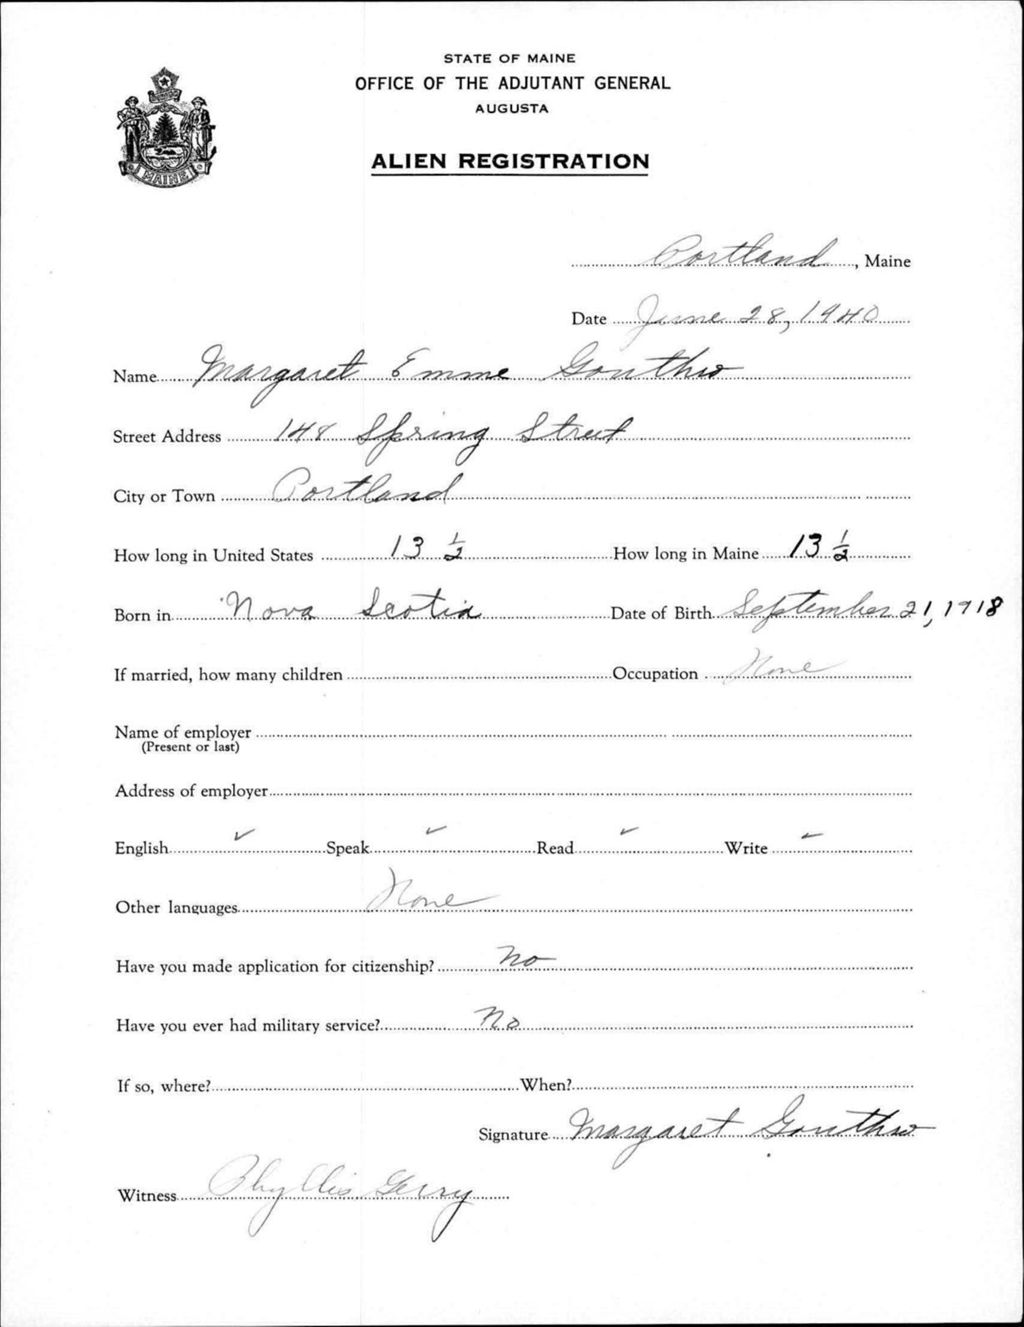 STATE OF MAINE
OFFICE OF THE ADJUTANT GENERAL
AUGUSTA
ALIEN REGISTRATION
MAINE
Portland, Maine
Date June 28, 1940
Name Margaret Emme Gouthro
Street Address 148 Spring Street
City or Town Portland
How long in United States 13 ½ How long in Maine 13 ½
Born in Nova Scotia Date of Birth September 21, 1918
If married, how many children Occupation None
Name of employer
(Present or last)
Address of employer
English ✓ Speak ✓ Read ✓ Write ✓
Other languages None
Have you made application for citizenship? No
Have you ever had military service? No
If so, where? When?
Signature Margaret Gouthro
Witness Phyllis Gerry